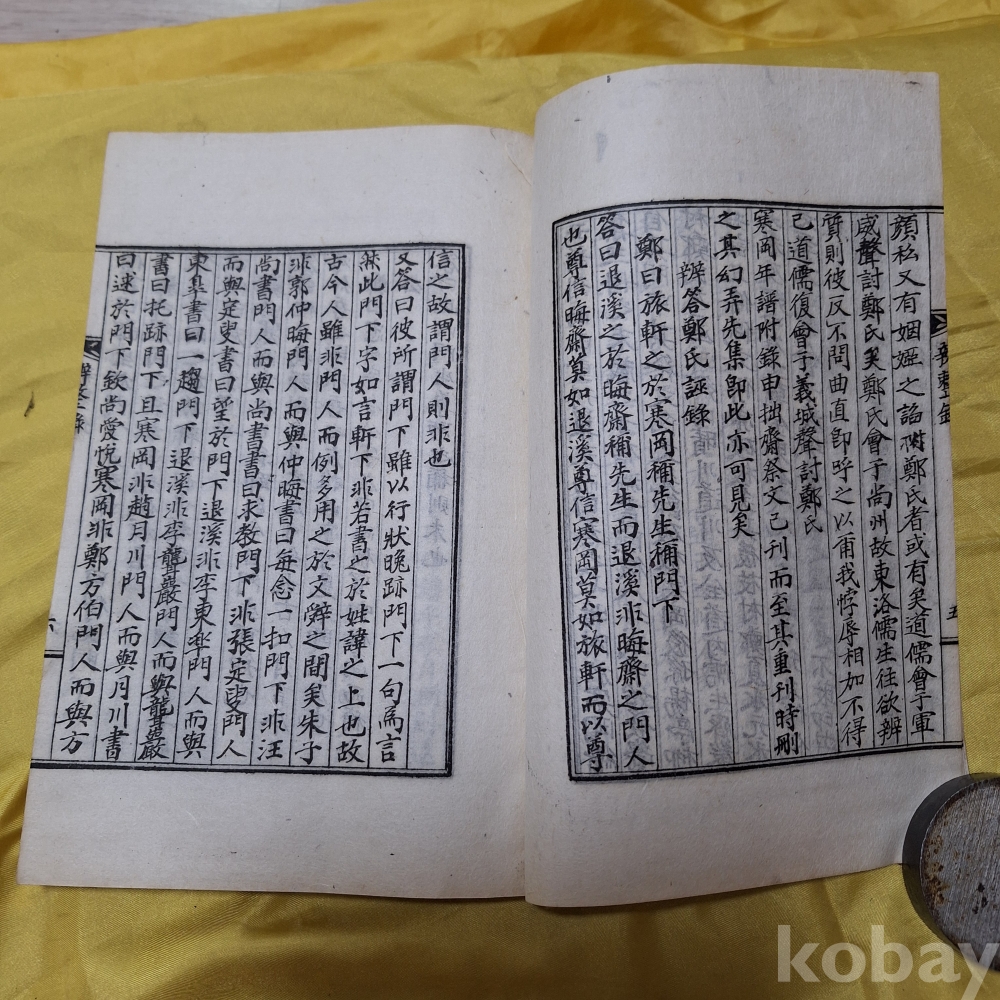 顔私又有姻婭之諂附鄭氏者或有矣道儒會于軍
咸聲討鄭氏矣鄭氏會于尚州故東洛儒生往欲辨
質則彼反不問曲直卽呼之以甭我悖辱相加不得
已道儒復會于義城聲討鄭氏
寒岡年譜附錄申拙齋祭文已刊而至其重刊時刪
之其幻弄先集卽此亦可見矣
辨答鄭氏誣錄
鄭曰旅軒之於寒岡稱先生稱門下
答曰退溪之於晦齋稱先生而退溪非晦齋之門人
也尊信晦齋莫如退溪尊信寒岡莫如旅軒而以尊
五
信之故謂門人則非也
又答曰彼所謂門下雖以行狀晩跡門下一句爲言
然此門下字如言軒下非若書之於姓諱之上也故
古今人雖非門人而例多用之於文辭之間矣朱子
非郭仲晦門人而與仲晦書曰每念一扣門下非汪
尚書門人而與尚書書曰求教門下非張定叟門人
而與定叟書曰望於門下退溪非李東皐門人而與
東皐書曰一趨門下退溪非李聾巖門人而與聾巖
書曰托跡門下且寒岡非趙月川門人而與月川書
曰迷於門下欽尚愛悅寒岡非鄭方伯門人而與方
六
kobay